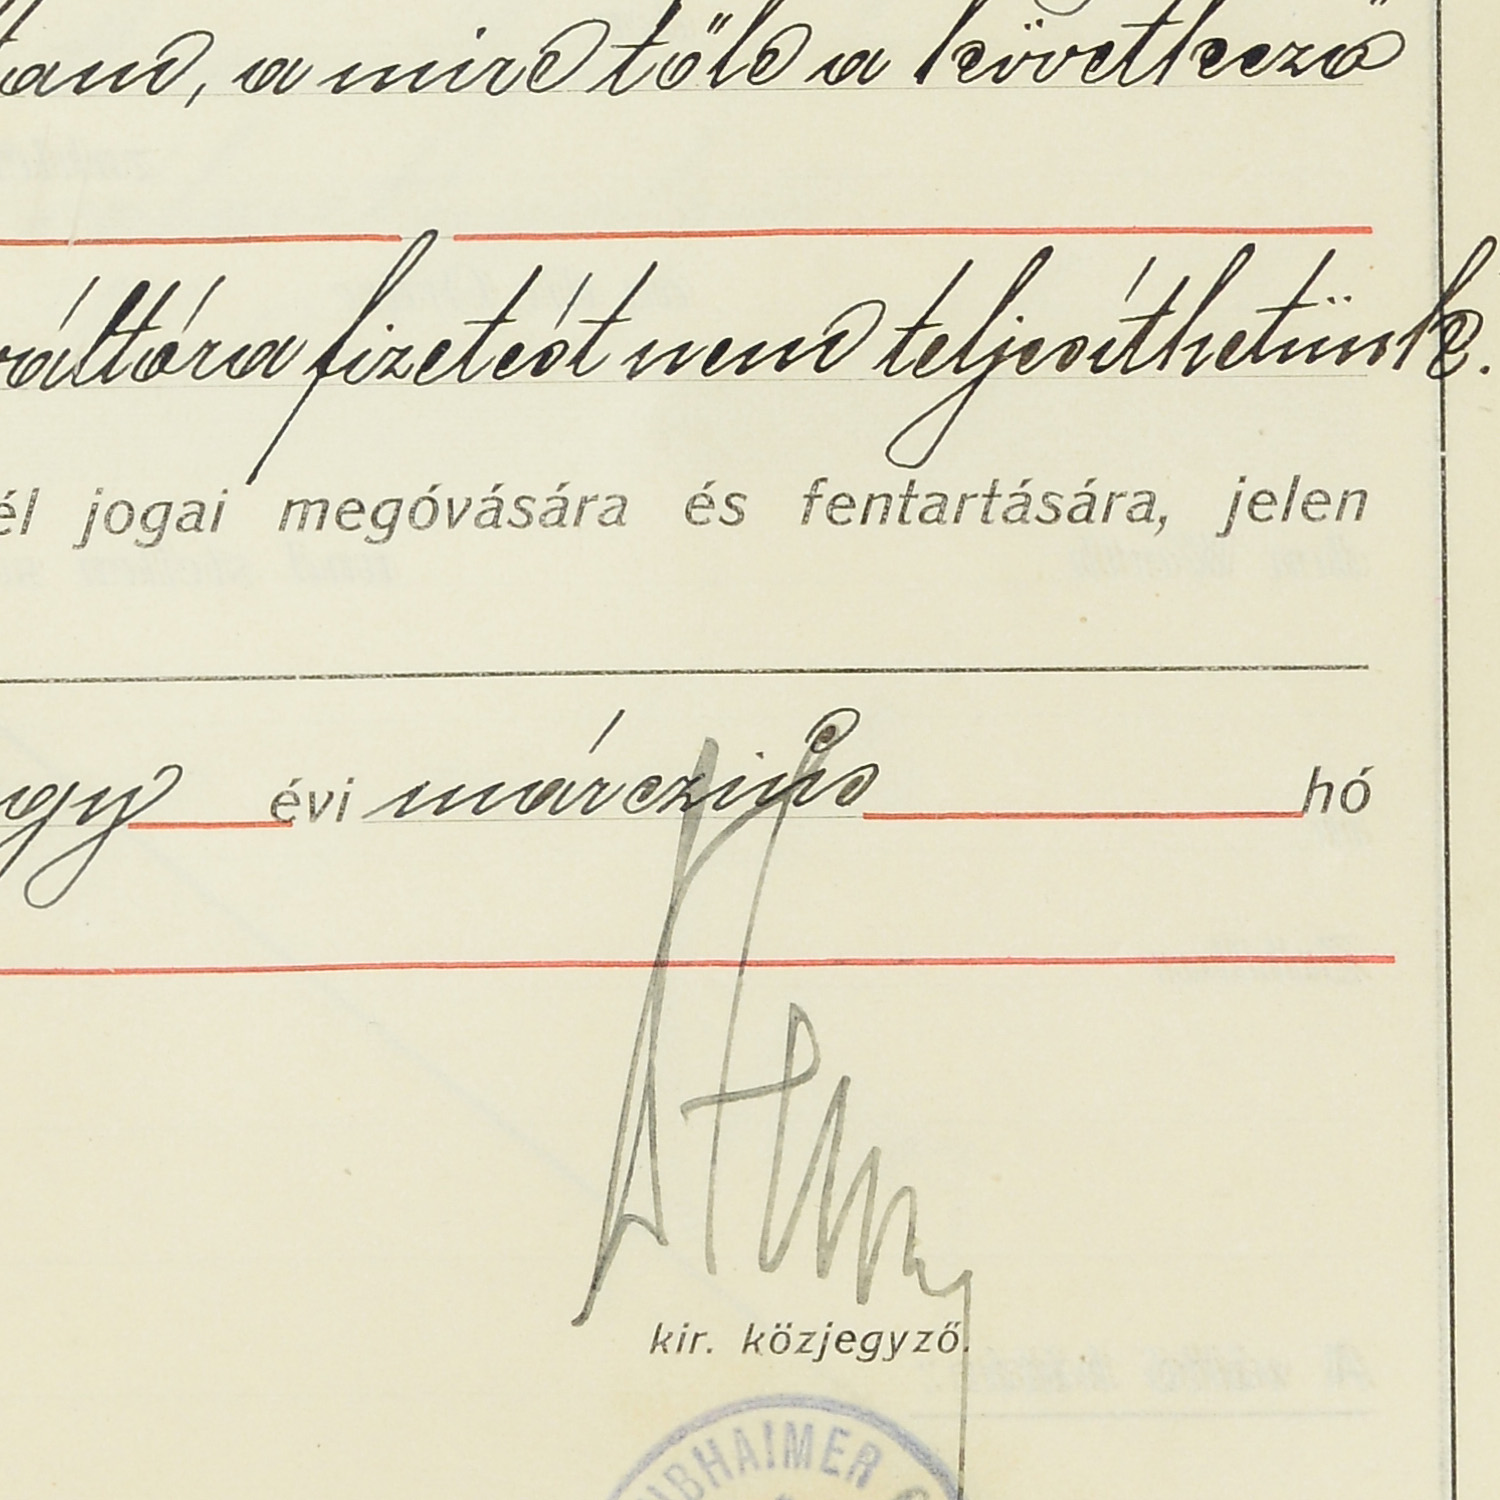 a mire tőle a következő
váltóra fizetést nem teljesíthetünk.
jogai megóvására és fentartására, jelen
évi márczius hó
kir. közjegyző.